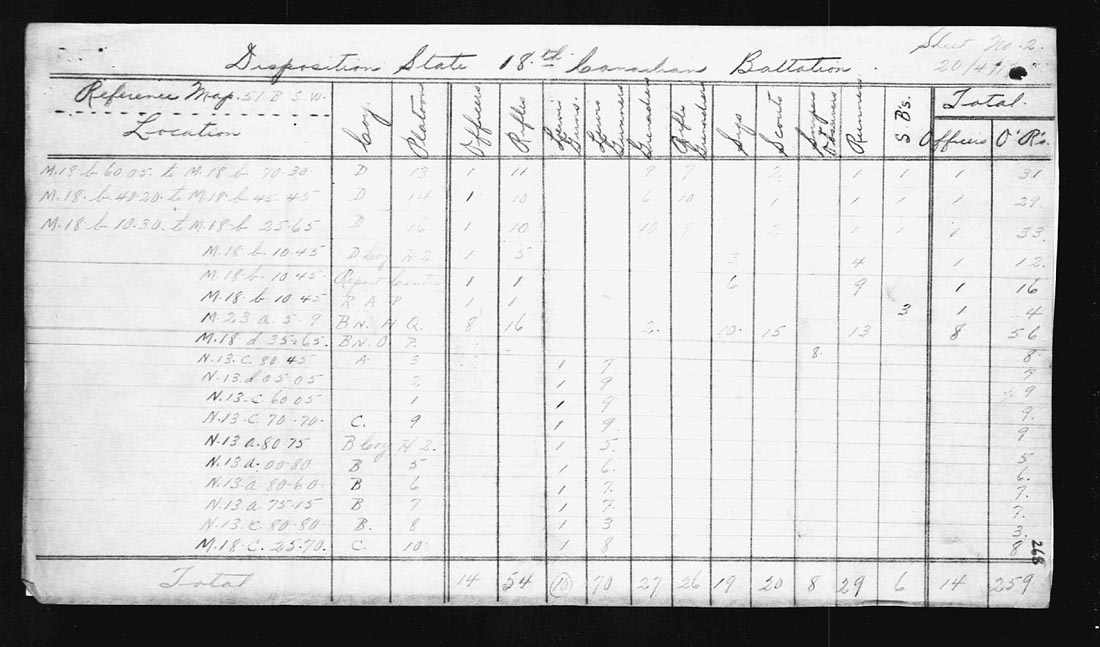 Sheet No. 2.
Disposition State 18th Canadian Battalion.
20/4/
Reference Map. 51 B S W. Total.
Location Coy. Platoon Officers Rifles Lewis Guns. Lewis Gunners Rifle Sigs Scouts Runners S.B's. Officers O'R's.
M.18.b.60.05. to M.18.b.70.30 D 13. 1 11 9 7 2 1 1 1 31
M.18.b.40.20. to M.18.b.45.45 D 14 1 10 6 10 1 1 1 1 29.
M.18.b.10.30. to M.18.b.25.65 D 16 1 10 10 9 2 1 1 1 33.
M.18.b.10.45 D Coy H 2 1 5 3 4 1 12.
M.18.b.10.45. Report 1 1 6 9 1 16
M.18.b.10.45 R A P 1 1 3 1 4
M.23.a.5.9 B N. H Q. 8 16 2. 10. 15 13 8 56
M.18.d.35.65. B N. O. P. 8. 8.
N.13.C.80.45 A. 3 1 7. 7
N.13.d.05.05 2. 1 9 9
N.13.C.60.05 1 1 9 9.
N.13.C.70.70. C. 9 1 9. 9
N.13.a.80.75 B Coy H 2. 1 5. 5
N.13.a.00.80 B 5 1 6. 6.
N.13.a.80.60. B 6 1 7. 7.
N.13.a.75.15 B 7 1 7. 7.
N.13.C.80.80 B. 8 1 3 3.
M.18.C.25.70. C. 10. 1 8 8
268
Total 14 54 10 70 27 26 19 20 8 29 6 14 259